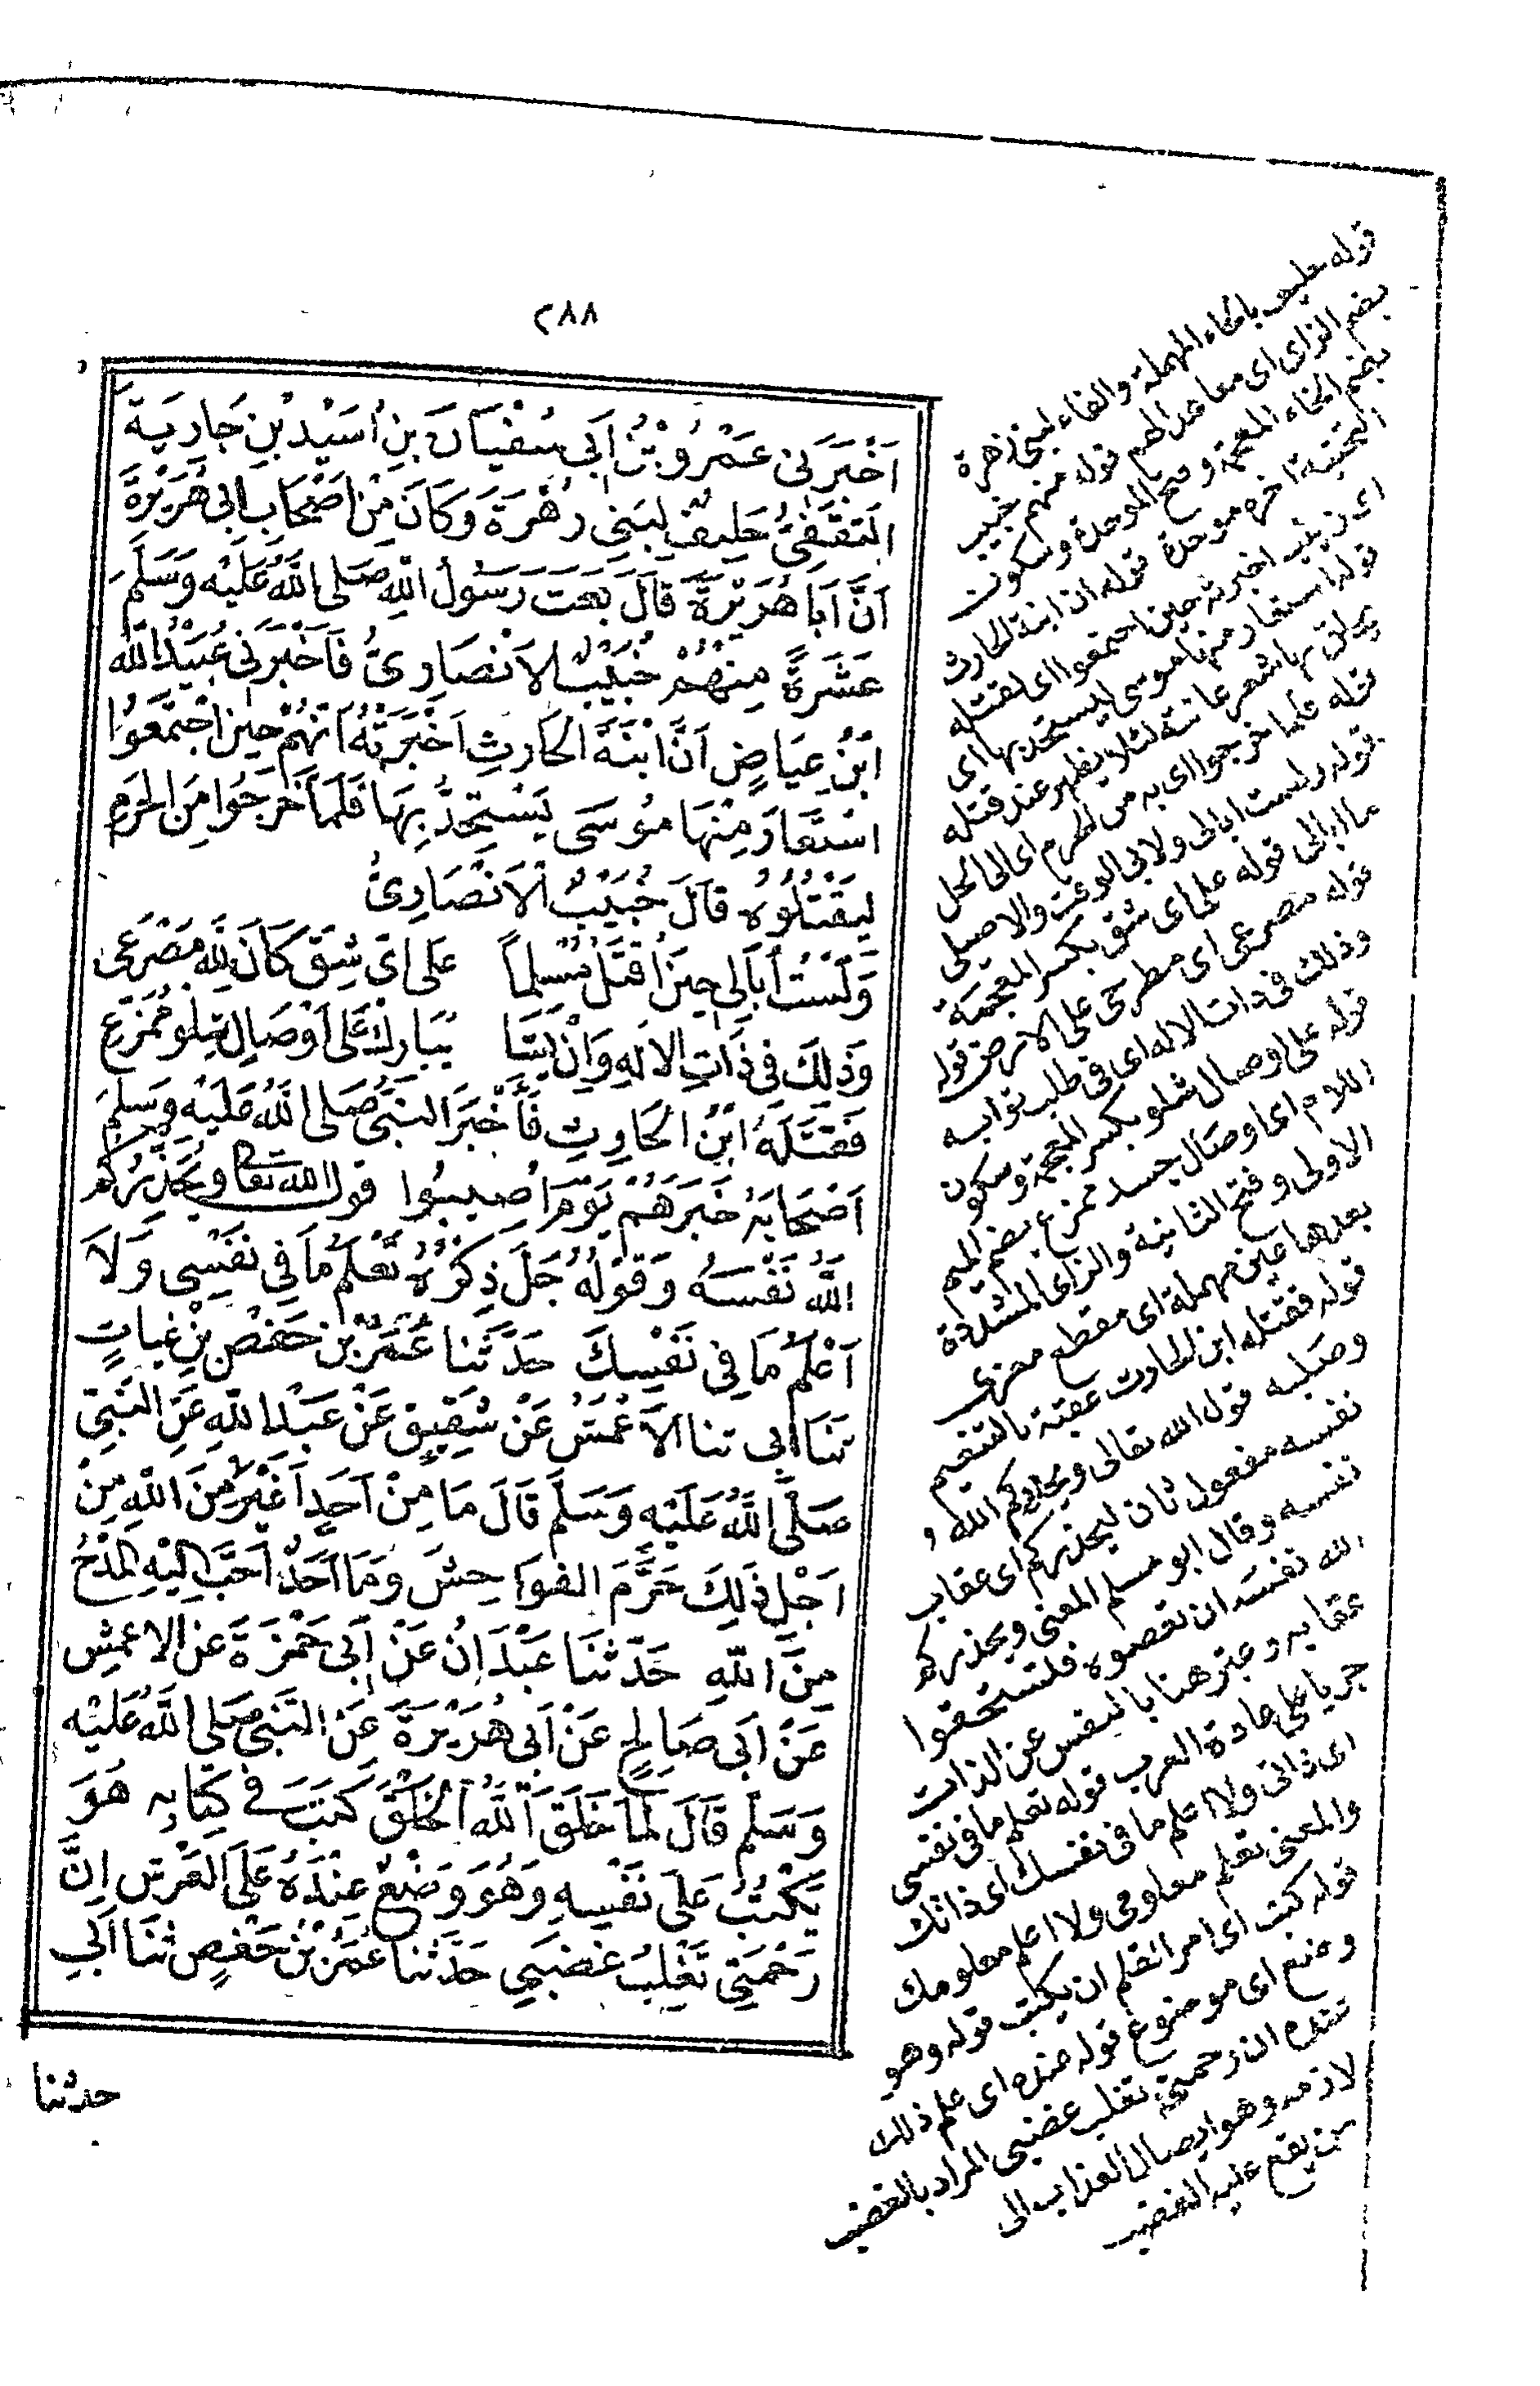 ٢٨٨
اَخْبَرَنِى عَمْرُوبْنُ اَبِى سُفْيَانَ بِنِ اُسَيْدْبِنِ جَارِيَةَ
الثَقَفِىُّ حَلِيفٌ لِبَنِى زُهْرَةَ وَكَانَ مِنْ اَصْحَابِ اَبِى هُرَيْرَةَ
اَنَّ اَبَا هُرَيْرَةَ قَالَ بَعَثَ رَسُولُ اللهِ صَلَى اللهُ عَلَيْه وَسَلَّمَ
عَشَرَةً مِنْهُمْ خُبَيْبٌ الاَنْصَارِىُّ فَاَخْبَرَنِى عُبَيْدُالله
ابْنُ عِيَاضٍ اَنَّ ابْنَةَ الحَارِثِ اَخْبَرَتْهُ اَنَّهُمْ حِينَ اجْتَمَعُوا
اسْتَعَارَ مِنْهَا مُوسَى يَسْتَحِدُّ بِهَا فَلَمَّا خَرَجُوا مِنَ الحَرَمِ
لِيَقْتُلُوهُ قَالَ خُبَيْبٌ الاَنْصَارِىُّ
وَلَسْتُ اُبَالِى حِينَ اُقْتَلُ مُسْلِماً عَلى اَىِّ شِقٍّ كَانَ لِلّهِ مَصْرَعِى
وَذَلِكَ فِى ذَاتِ الاِلَهِ وَاِنْ يَشَا يُبَارِكْ عَلَى اَوْصَالِ شِلْوٍ مُمَزَّعِ
فَقَتَلَهُ ابْنُ الحَارِثِ فَأَخْبَرَ النَبِىُّ صَلى اللهُ عَلَيْه وَسَلَمَ
اَصْحَابَهُ خَبَرَهُمْ يَوْمَ اُصِيبُوا قول الله تعا وَيُحَذِّرُكُم
اللهُ نَفْسَهُ وَقَوْلُهُ جَلَ ذِكْرُهُ تَعْلَمُ مَا فِى نَفْسِى وَلاَ
اَعْلَمُ مَا فِى نَفْسِكَ حَدَّثَنا عُمَرُ بْنُ حَفْصِ بْنِ غِيَاثٍ
ثَنَا اَبِى ثنا الاَعْمَشُ عَنْ شَقِيقٍ عَنْ عَبْدِ اللهِ عَنِ النَّبِىِّ
صَلَّى اللهُ عَلَيْه وَسَلَّمَ قَالَ مَا مِنْ اَحَدٍ اَغْيَرُ مِنَ اللهِ مِنْ
اَجْلِ ذَلِكَ حَرَّمَ الفَوَاحِشَ وَمَا اَحَدٌ اَحَبَّ اِلَيْهِ المَدْحُ
مِنَ اللهِ حَدَّثَنَا عَبْدَانُ عَنْ اَبِى حَمْزَةَ عَنِ الاعْمَشِ
عَنْ اَبِى صَالِحٍ عَنْ اَبِى هُرَيْرَةَ عَنْ النَّبِىِّ صَلى اللهُ عَلَيْه
وَسَلَّم قَالَ لَمَّا خَلَقَ اللهُ الخَلْقَ كَتَبَ فِى كِتَابِه هُوَ
يَكْتُبُ عَلَى نَفْسِهِ وَهُوَ وَضْعٌ عِنْدَهُ عَلَى العَرْشِ اِنَّ
رَحْمَتِى تَغْلِبُ غَضَبِى حَدَّثنا عُمَرُ بْنُ حَفْصٍ ثنَا اَبِى
حدثنا
قوله حليف بالحاء المهملة والفاء لبنى زهرة
بضم الزاى اى معاهد لهم قوله منهم خبيب
بضم الخاء المعجمة وفتح الموحدة وسكون
التحتية اخره موحدة قوله ان ابنة الحارث
اى زينب اخبرته حين اجتمعوا اى لقتله
قوله استعار منها موسى ليستحد بها اى
يحلق بها شعر عانته لئلا يظهر عند قتله
قوله فلما خرجوا اى به من الحرم اى الى الحل
قوله ولست ابالى ولابى الوقت والاصيلى
ما ابالى قوله على اى شق بكسر المعجمة
قوله مصرعى اى مطرحى على الارض قوله
وذلك فى ذات الاله اى فى طلب ثوابه
قوله على اوصال شلو بكسر المعجمة وسكون
اللام اى اوصال جسد ممزع بضم الميم
الاولى وفتح الثانية والزاى المشددة
بعدها عين مهملة اى مقطع مفرق
قوله فقتله ابن الحارث عقبة بالتنعيم
وصلبه قوله الله تعالى ويحذركم الله
نفسه مفعول ثان ليحذركم اى عقاب
نفسه وقال ابو مسلم المعنى ويحذركم
الله نفسه ان تعصوه فلتستحقوا
عقابه وعبر هنا بالنفس عن الذات
جريا على عادة العرب قوله تعلم ما فى نفسى
اى ذاتى ولا اعلم ما فى نفسك اى ذاتك
والمعنى تعلم معلومى ولا اعلم معلومك
قوله كتب اى امر القلم ان يكتب قوله وهو
وضع اى موضوع قوله عنده اى علم ذلك
عنده ان رحمتى تغلب غضبى المراد بالغضب
لازمه وهو ايصال العذاب الى
من يقع عليه الغضب